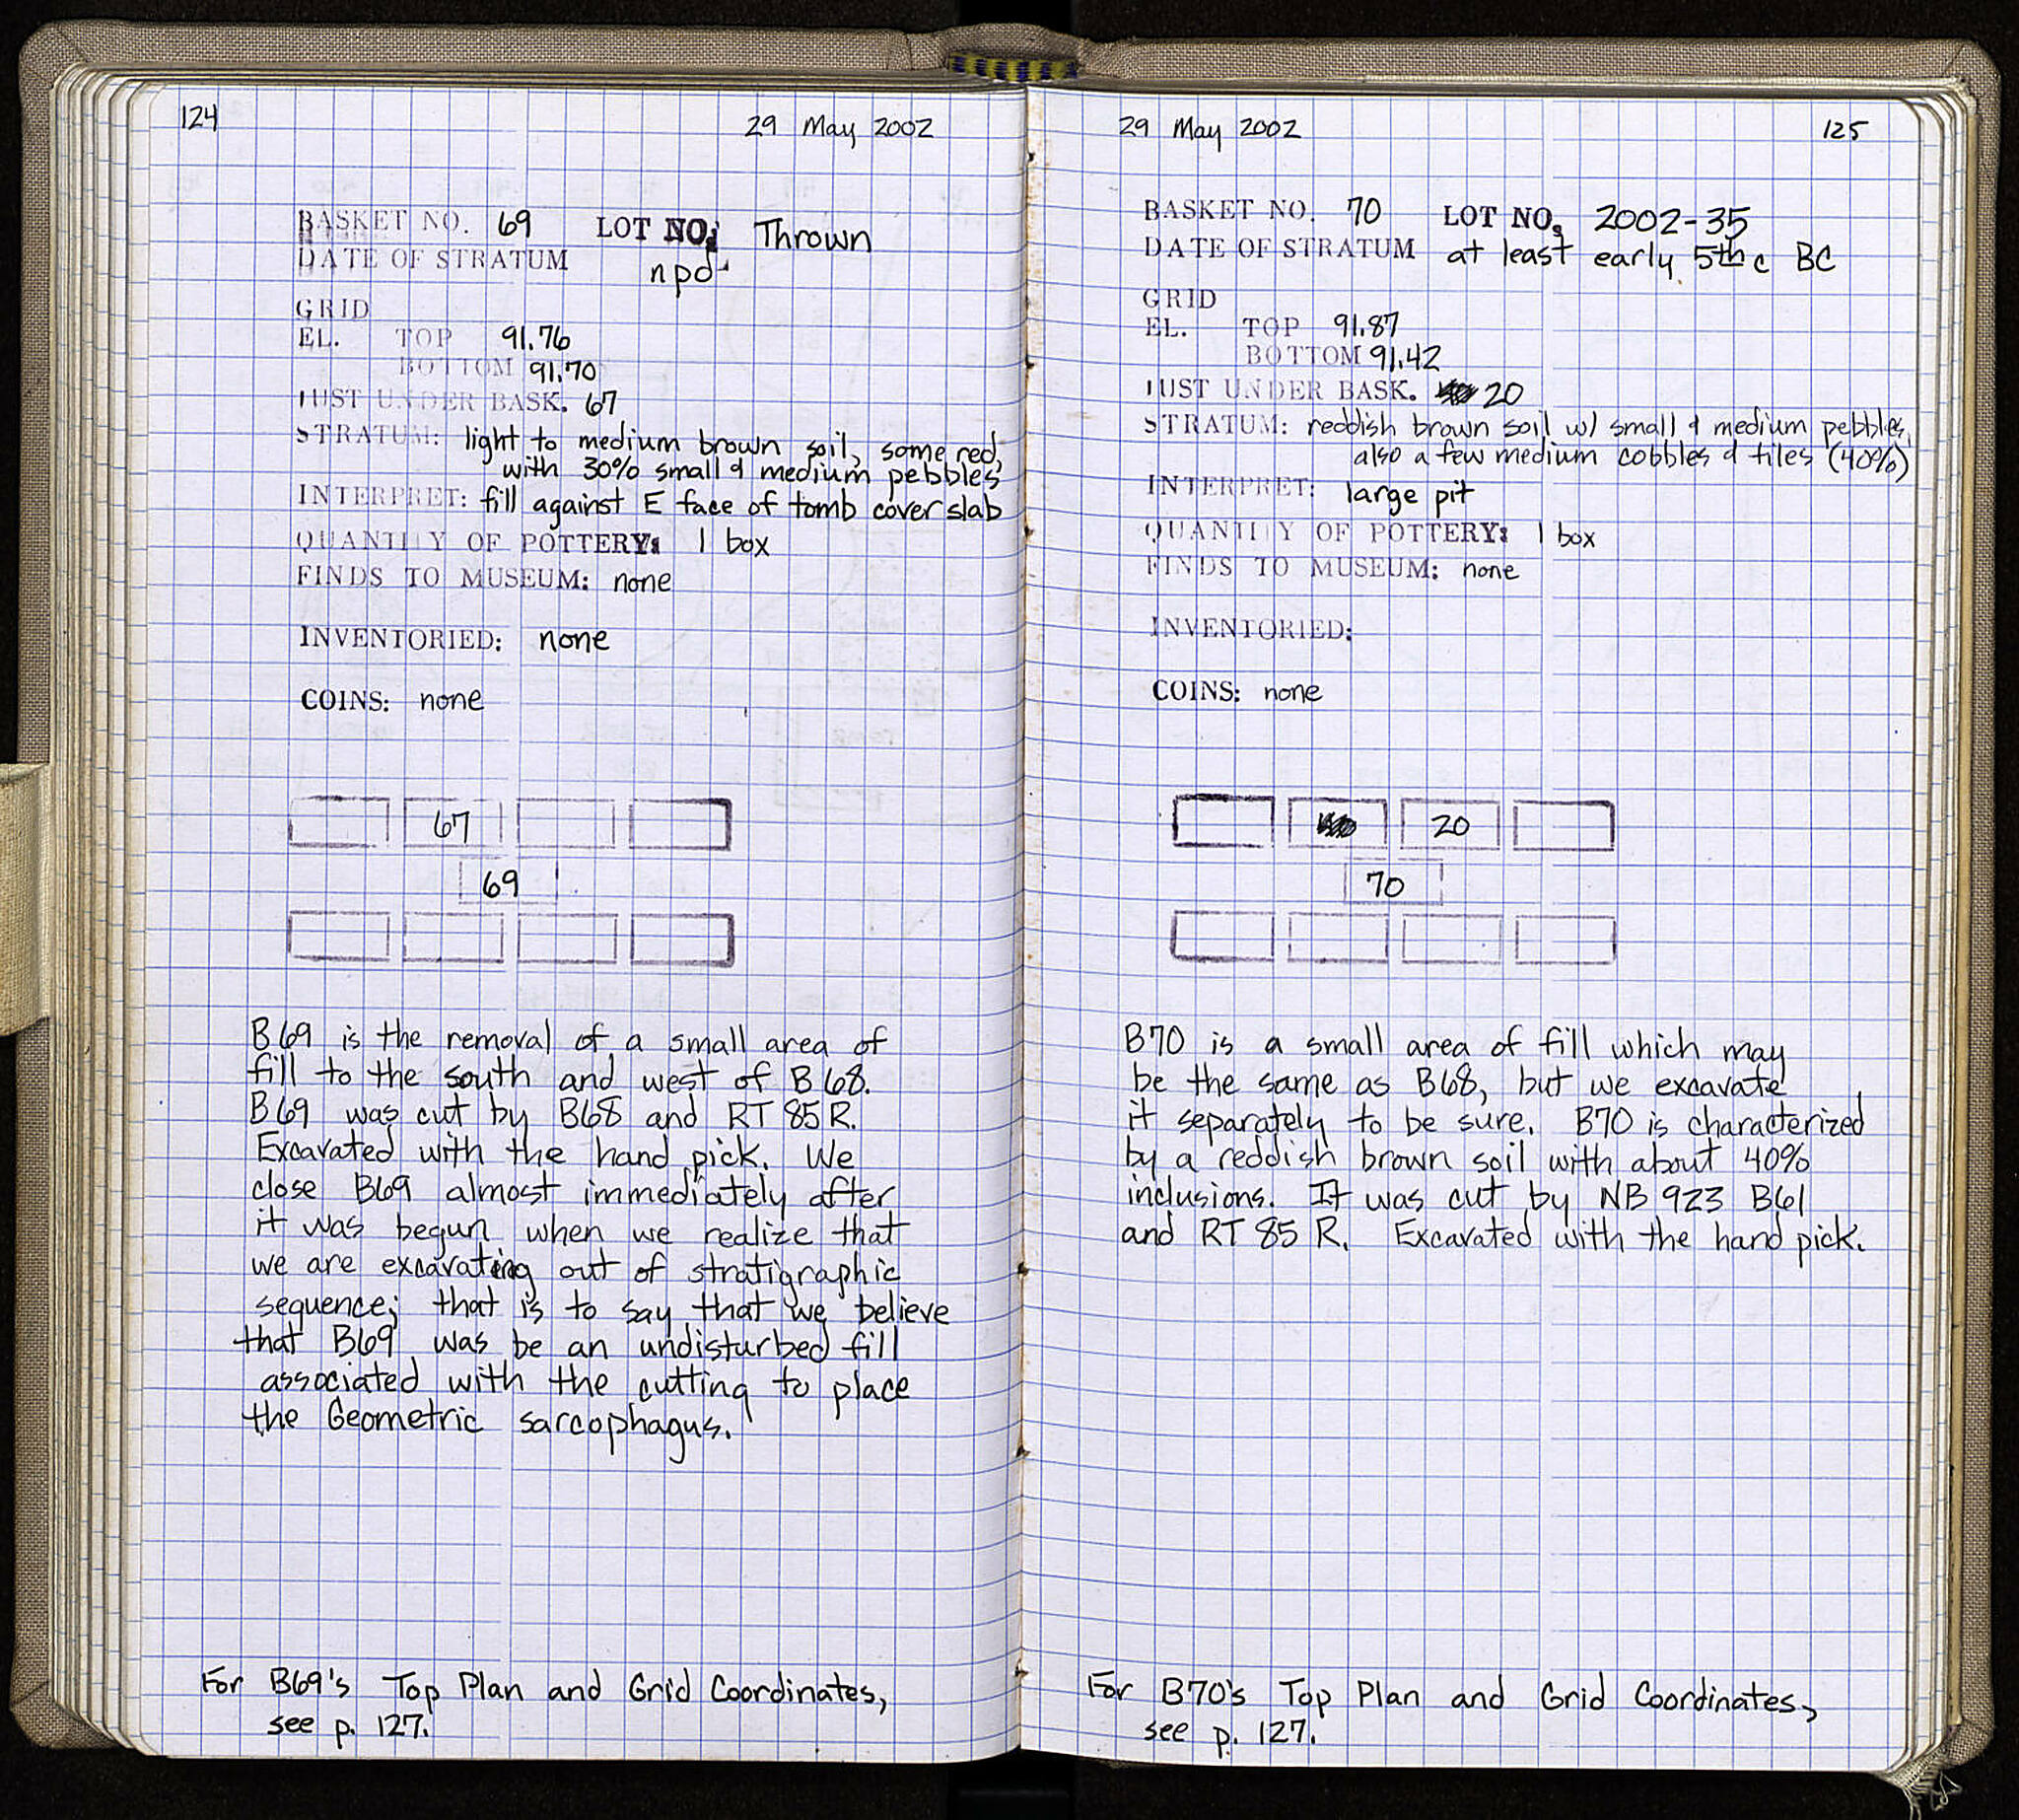 124
29 May 2002
BASKET NO. 69 LOT NO. Thrown
DATE OF STRATUM npd
GRID
EL. TOP 91.76
BOTTOM 91.70
JUST UNDER BASK. 67
STRATUM: light to medium brown soil, some red,
with 30% small & medium pebbles
INTERPRET: fill against E face of tomb cover slab
QUANTITY OF POTTERY: 1 box
FINDS TO MUSEUM: none
INVENTORIED: none
COINS: none
67
69
B69 is the removal of a small area of
fill to the south and west of B68.
B69 was cut by B68 and RT 85 R.
Excavated with the hand pick. We
close B69 almost immediately after
it was begun when we realize that
we are excavating out of stratigraphic
sequence; that is to say that we believe
that B69 was be an undisturbed fill
associated with the cutting to place
the Geometric sarcophagus.
For B69's Top Plan and Grid Coordinates,
see p. 127.
29 May 2002
125
BASKET NO. 70 LOT NO. 2002-35
DATE OF STRATUM at least early 5th c BC
GRID
EL. TOP 91.87
BOTTOM 91.42
JUST UNDER BASK. 20
STRATUM: reddish brown soil w/ small & medium pebbles,
also a few medium cobbles & tiles (40%)
INTERPRET: large pit
QUANTITY OF POTTERY: 1 box
FINDS TO MUSEUM: none
INVENTORIED:
COINS: none
20
70
B70 is a small area of fill which may
be the same as B68, but we excavate
it separately to be sure. B70 is characterized
by a reddish brown soil with about 40%
inclusions. It was cut by NB 923 B61
and RT 85 R. Excavated with the hand pick.
For B70's Top Plan and Grid Coordinates,
see p. 127.